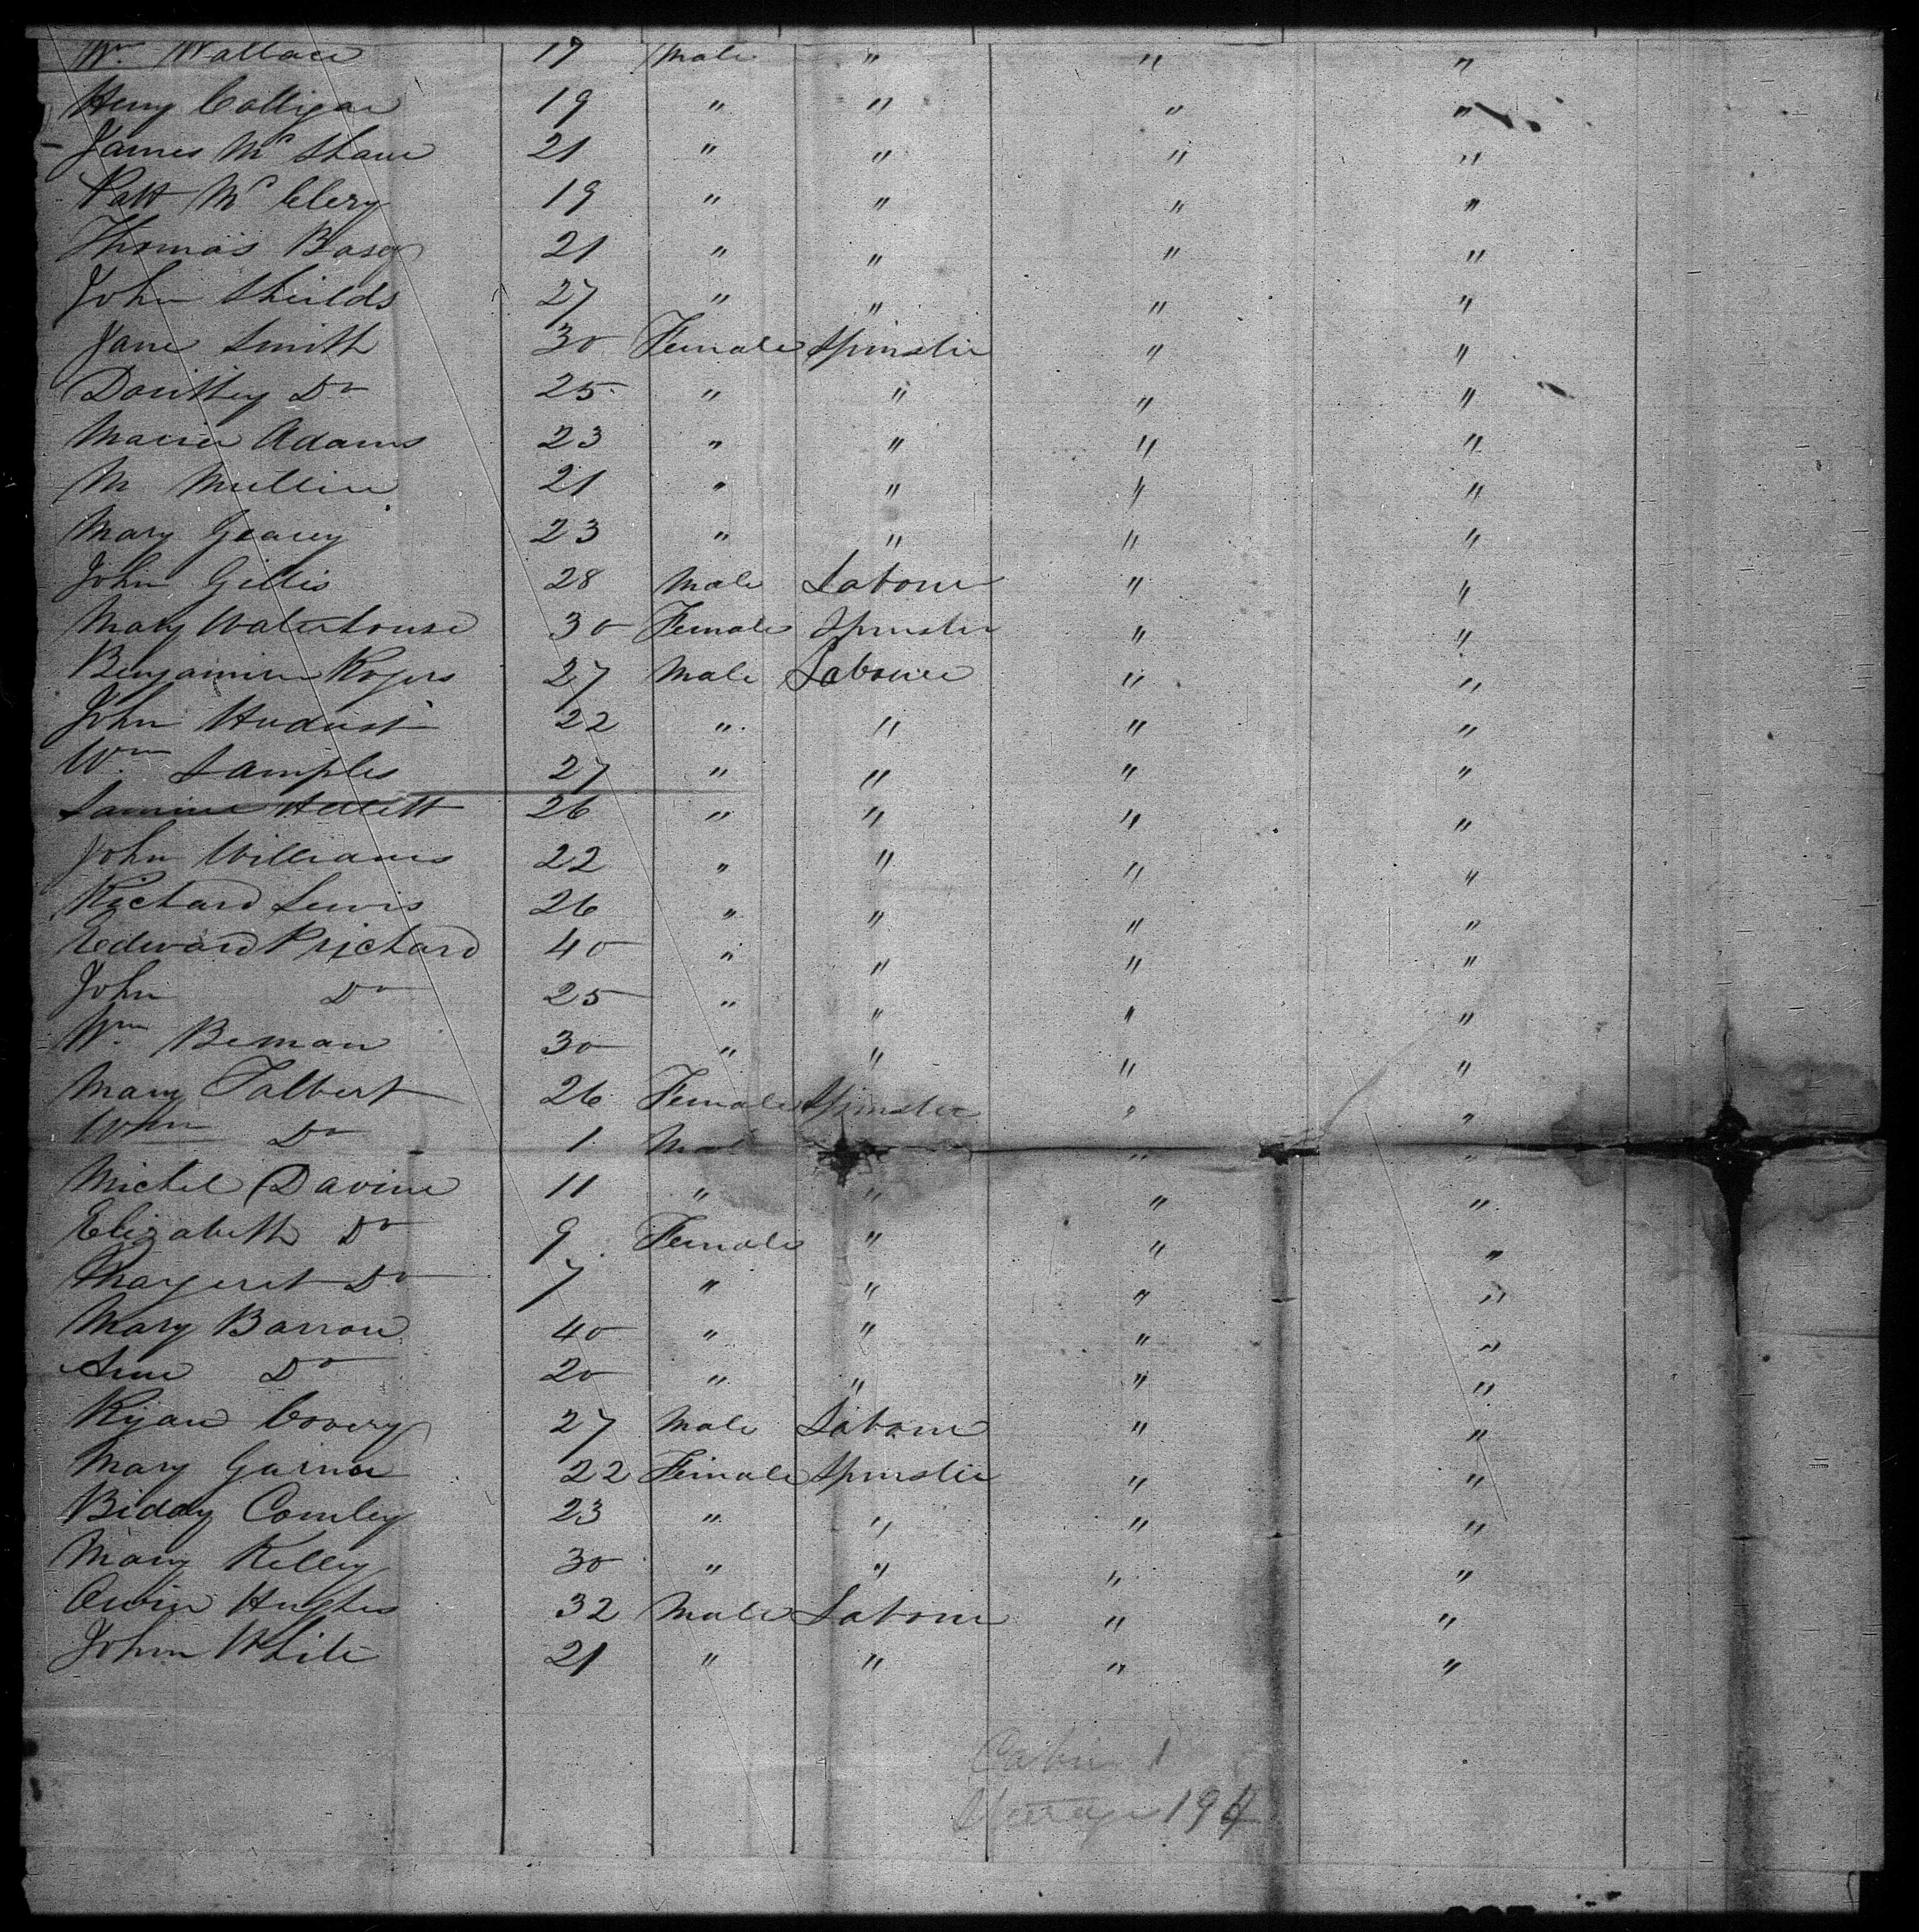 Wm Wallace 19 Male " " "
Henry Colligan 19 " " " "
James Mc Shane 21 " " " "
Patt Mc Clery 19 " " " "
Thomas 21 " " " "
John Sheilds 27 " " " "
Jane Smith 30 Female Spinster " "
Do 25 " " " "
Adams 23 " " " "
M Mullin 21 " " " "
Mary Gearey 23 " " " "
John Gillis 28 Male Labour " "
Mary Waterhouse 30 Female Spinster " "
Benjamin Rogers 27 Male Labourer " "
John 22 " " " "
Wm Samples 27 " " " "
26 " " " "
John Williams 22 " " " "
Richard Lewis 26 " " " "
Edward Prichard 40 " " " "
John Do 25 " " " "
Wm Beman 30 " " " "
Mary Talbert 26 Female Spinster " "
Wm Do 1 Male " "
Michel Davine 11 " " " "
Elizabeth Do 9 Female " " "
Margeret Do 7 " " " "
Mary Barron 40 " " " "
Ann Do 20 " " " "
Ryan Covery 27 Male Labour " "
Mary Garner 22 Female Spinster " "
Biddy Comley 23 " " " "
Mary Kelley 30 " " " "
Owin Hughes 32 Male Labour " "
John White 21 " " " "
Cabin 1
Steerage 194